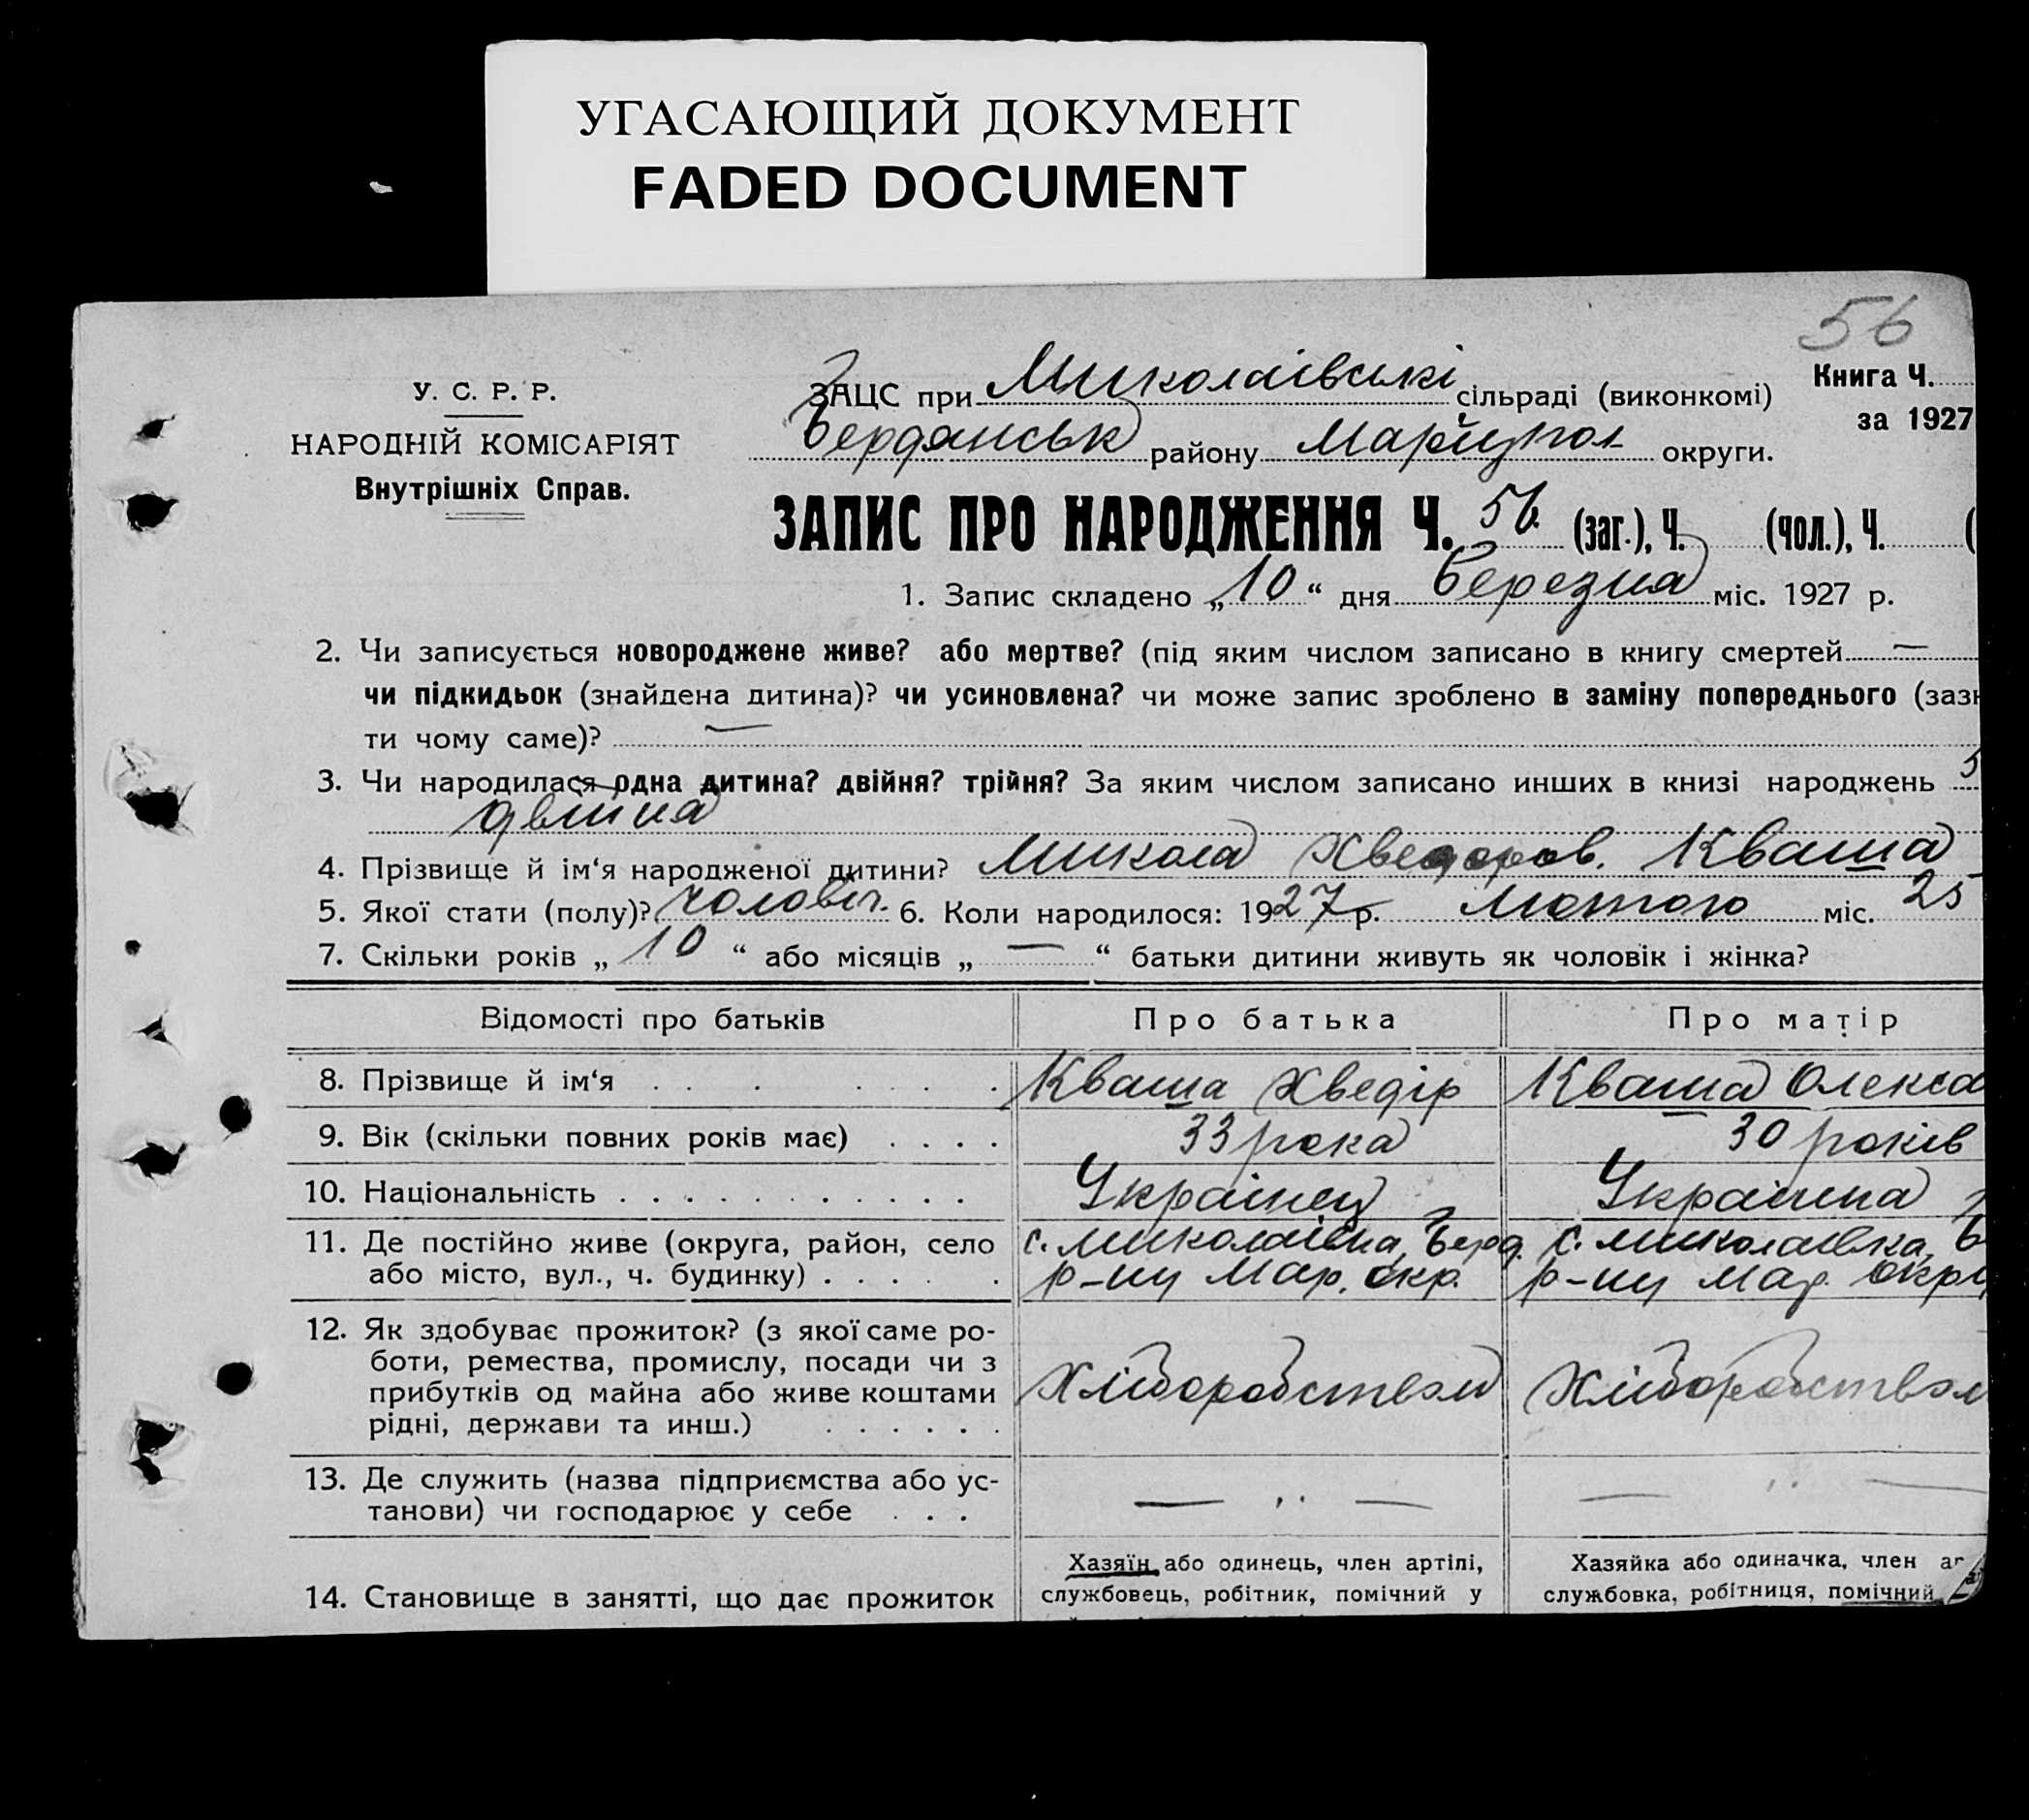 УГАСАЮЩИЙ ДОКУМЕНТ
FADED DOCUMENT
56
У. С. Р. Р.
НАРОДНІЙ КОМІСАРІЯТ
Внутрішніх Справ.
ЗАЦС при Миколаївські сільраді (виконкомі)
Бердянськ району Маріупол округи.
Книга Ч.
за 1927
ЗАПИС ПРО НАРОДЖЕННЯ Ч. 56 (заг.), Ч. (чол.), Ч. (
1. Запис складено „10“ дня Березня міс. 1927 р.
2. Чи записується новороджене живе? або мертве? (під яким числом записано в книгу смертей —
чи підкидьок (знайдена дитина)? чи усиновлена? чи може запис зроблено в заміну попереднього (зазн
ти чому саме)? —
3. Чи народилася одна дитина? двійня? трійня? За яким числом записано инших в книзі народжень 5
двійна
4. Прізвище й ім‘я народженої дитини? Микола Хведоров. Кваша
5. Якої стати (полу)? чоловіч. 6. Коли народилося: 1927 р. Лютого міс. 25
7. Скільки років „10“ або місяців „—“ батьки дитини живуть як чоловік і жінка?
Відомості про батьків Про батька Про матір
8. Прізвище й ім‘я Кваша Хведір Кваша Олекса
9. Вік (скільки повних років має) 33 рока 30 років
10. Національність Українец Українка
11. Де постійно живе (округа, район, село с. Миколаївка, Берд. с. Миколаївка, Б
або місто, вул., ч. будинку) р-ну Мар. окр. р-ну Мар. окр
12. Як здобуває прожиток? (з якої саме ро-
боти, ремества, промислу, посади чи з
прибутків од майна або живе коштами Хліборобством Хліборобством
рідні, держави та инш.)
13. Де служить (назва підприємства або ус-
танови) чи господарює у себе — „ — — „ —
Хазяїн або одинець, член артілі, Хазяйка або одиначка, член ар
14. Становище в занятті, що дає прожиток службовець, робітник, помічний у службовка, робітниця, помічний